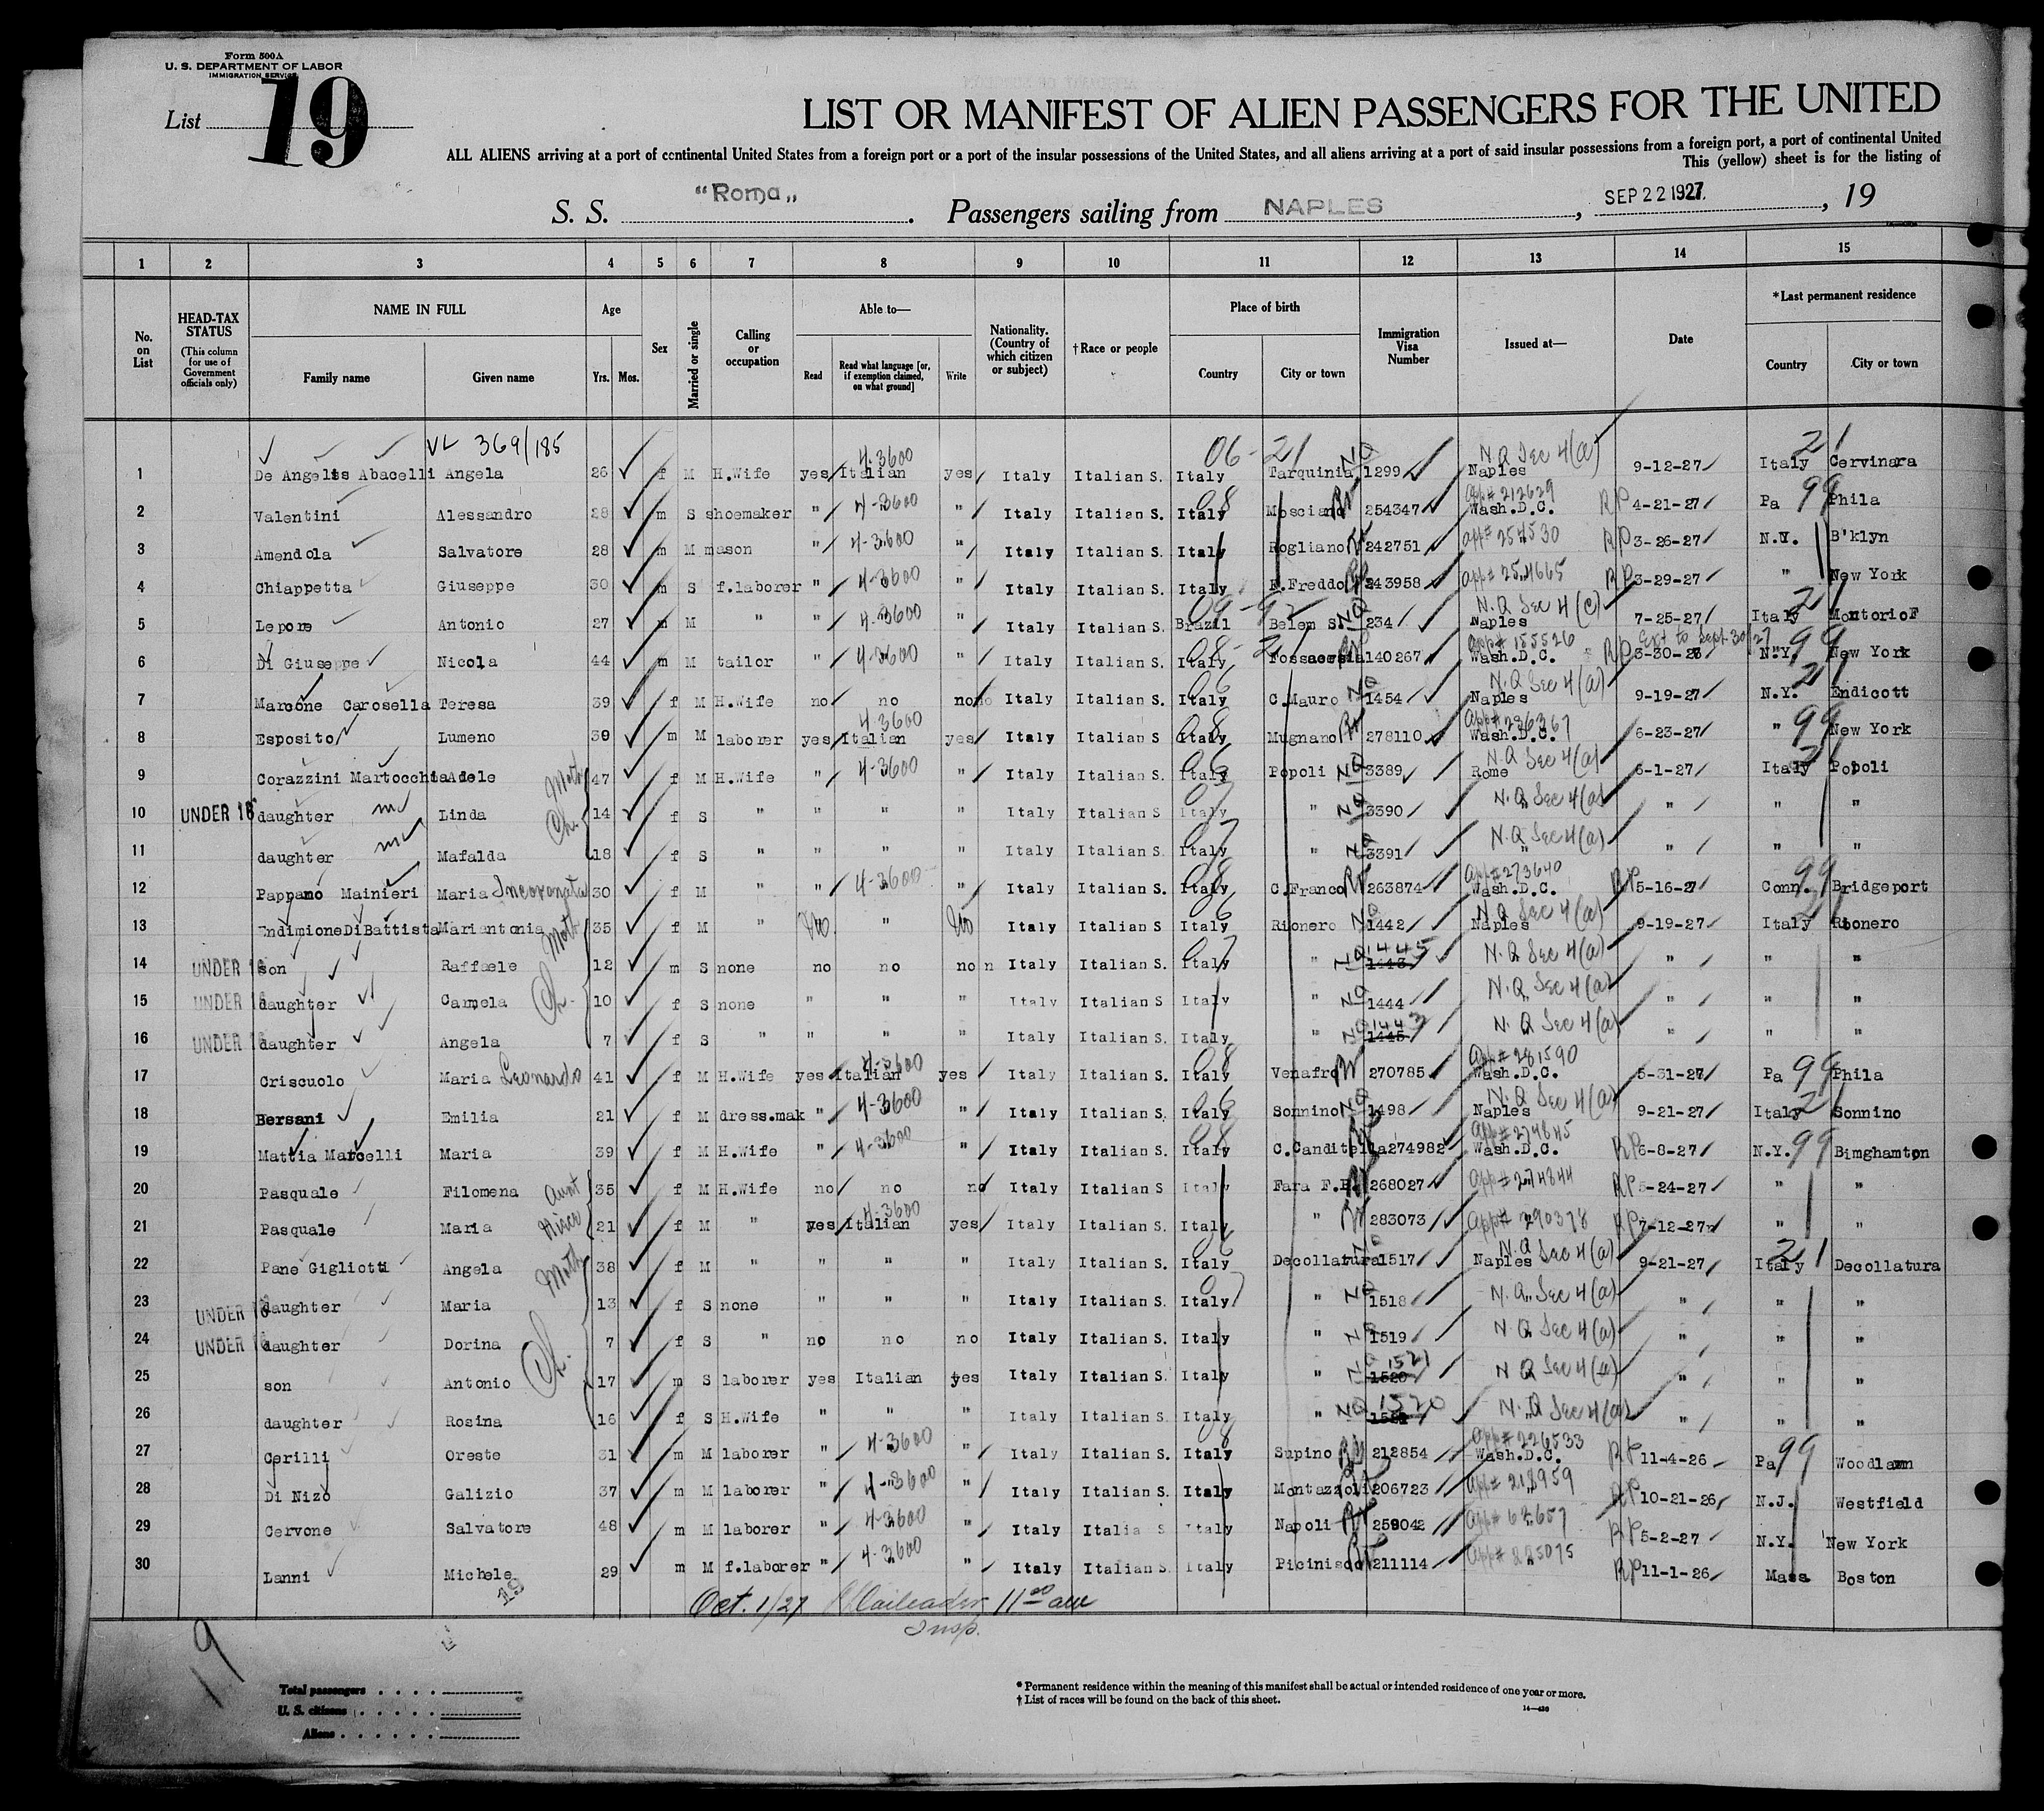 Form 500A
U. S. DEPARTMENT OF LABOR
IMMIGRATION SERVICE
List 19
LIST OR MANIFEST OF ALIEN PASSENGERS FOR THE UNITED
ALL ALIENS arriving at a port of continental United States from a foreign port or a port of the insular possessions of the United States, and all aliens arriving at a port of said insular possessions from a foreign port, a port of continental United
This (yellow) sheet is for the listing of
S. S. "Roma„ . Passengers sailing from NAPLES , SEP 22 1927. , 19
1 2 3 4 5 6 7 8 9 10 11 12 13 14 15
No. on List
HEAD-TAX STATUS (This column for use of Government officials only)
NAME IN FULL Family name Given name
Age Yrs. Mos.
Sex
Married or single
Calling or occupation
Able to— Read Read what language [or, if exemption claimed, on what ground] Write
Nationality. (Country of which citizen or subject)
†Race or people
Place of birth Country City or town
Immigration Visa Number
Issued at—
Date
*Last permanent residence Country City or town
VL 369/185 4-3600 06-21 N.Q Sec 4(a) 21
1 De Angelis Abacelli Angela 26 f M H.Wife yes Italian yes Italy Italian S. Italy Tarquinia NQ 1299 Naples 9-12-27 Italy Cervinara
2 Valentini Alessandro 28 m S shoemaker " 4-3600 " Italy Italian S. Italy 08 Mosciano 254347 App# 212629 Wash.D.C. RP 4-21-27 Pa 99 Phila
3 Amendola Salvatore 28 m M mason " 4-3600 " Italy Italian S. Italy Rogliano 242751 App# 254530 RP 3-26-27 N.Y. B'klyn
4 Chiappetta Giuseppe 30 m S f.laborer " 4-3600 " Italy Italian S. Italy F.Freddo 243958 App# 254665 RP 3-29-27 " New York
5 Lepore Antonio 27 m M " " 4-3600 " Italy Italian S. Brazil 09-92 Belem S. NQ 234 N.Q Sec 4(c) Naples 7-25-27 Italy 21 MontorioF
6 Di Giuseppe Nicola 44 m M tailor " 4-3600 " Italy Italian S. Italy 08-21 Fossacesia 140267 App# 155526 Wash.D.C. RP Ext to Sept 30/27 N.Y. 99 New York
7 Marcone Carosella Teresa 39 f M H.Wife no no no Italy Italian S. Italy 06 C.Mauro NQ 1454 N.Q Sec 4(a) Naples 9-19-27 N.Y. 21 Endicott
8 Esposito Lumeno 39 m M laborer yes 4-3600 Italian yes Italy Italian S Italy 08 Mugnano 278110 App# 286367 Wash.D.C. 6-23-27 " 99 New York
9 Corazzini Martocchia Adele Moth 47 f M H.Wife " 4-3600 " Italy Italian S Italy 06 Popoli NQ 3389 N.Q Sec 4(a) Rome 6-1-27 Italy 21 Popoli
10 UNDER 16 daughter Linda Ch. 14 f S " " " " Italy Italian S Italy 07 " NQ 3390 N.Q Sec 4(a) " " "
11 daughter Mafalda 18 f S " " " " Italy Italian S. Italy 07 " NQ 3391 N.Q Sec 4(a) " " "
12 Pappano Mainieri Maria Incoronata 30 f M " " 4-3600 " Italy Italian S. Italy 08 C.Franco 263874 App# 273640 Wash.D.C. RP 5-16-27 Conn. 99 Bridgeport
13 Endimione DiBattista Mariantonia Moth 35 f M " No " No Italy Italian S Italy 06 Rionero NQ 1442 N.Q Sec 4(a) Naples 9-19-27 Italy Rionero
14 UNDER 16 son Raffaele Ch. 12 m S none no no no Italy Italian S. Italy 07 " NQ 1445 N.Q Sec 4(a) " " "
15 UNDER 16 daughter Camela 10 f S none " " " Italy Italian S Italy " NQ 1444 N.Q Sec 4(a) " " "
16 UNDER 16 daughter Angela 7 f S " " " " Italy Italian S. Italy " NQ 1443 1445 N.Q Sec 4(a) " " "
17 Criscuolo Maria Leonarda 41 f M H.Wife yes 4-3600 Italian yes Italy Italian S. Italy 08 Venafro 270785 App# 281590 Wash.D.C. 5-31-27 Pa 99 Phila
18 Bersani Emilia 21 f M dress.mak " 4-3600 " Italy Italian S. Italy 06 Sonnino NQ 1498 N.Q Sec 4(a) Naples 9-21-27 Italy 21 Sonnino
19 Mattia Marcelli Maria 39 f M H.Wife " 4-3600 " Italy Italian S. Italy 08 C.Canditella 274982 App# 274845 Wash.D.C. RP 6-8-27 N.Y. 99 Bimghamton
20 Pasquale Filomena Aunt 35 f M H.Wife no no no Italy Italian S Italy Fara F.P. 268027 App# 274844 RP 5-24-27 " "
21 Pasquale Maria Niece 21 f M " yes 4-3600 Italian yes Italy Italian S. Italy " 283073 App# 290378 RP 7-12-27 " "
22 Pane Gigliotti Angela Moth 38 f M " " " " Italy Italian S. Italy 06 Decollatura NQ 1517 N.Q Sec 4(a) Naples 9-21-27 Italy 21 Decollatura
23 UNDER 16 daughter Maria 13 f S none " " " Italy Italian S. Italy 07 " NQ 1518 N.Q Sec 4(a) " " "
24 UNDER 16 daughter Dorina Ch. 7 f S " no no no Italy Italian S. Italy " NQ 1519 N.Q Sec 4(a) " " "
25 son Antonio 17 m S laborer yes Italian yes Italy Italian S. Italy " NQ 1521 1520 N Q Sec 4(a) " " "
26 daughter Rosina 16 f S H.Wife " " " Italy Italian S. Italy " NQ 1520 1521 N.Q Sec 4(a) " " "
27 Cerilli Oreste 31 m M laborer " 4-3600 " Italy Italian S. Italy 08 Supino 212854 App# 226533 Wash.D.C. RP 11-4-26 Pa 99 Woodlawn
28 Di Nizo Galizio 37 m M laborer " 4-3600 " Italy Italian S. Italy Montazzoli 206723 App# 218959 RP 10-21-26 N.J. Westfield
29 Cervone Salvatore 48 m M laborer " 4-3600 " Italy Italia S Italy Napoli 259042 App# 62657 RP 5-2-27 N.Y. New York
30 Lanni Michele 29 m M f.laborer " 4-3600 " Italy Italian S. Italy Picinisco 211114 App# 225075 RP 11-1-26 Mass Boston
19
Oct. 1/27 11 00 am
Insp.
19
Total passengers . . . .
U. S. citizens . . . . .
Aliens . . . . . .
* Permanent residence within the meaning of this manifest shall be actual or intended residence of one year or more.
† List of races will be found on the back of this sheet.
14—430